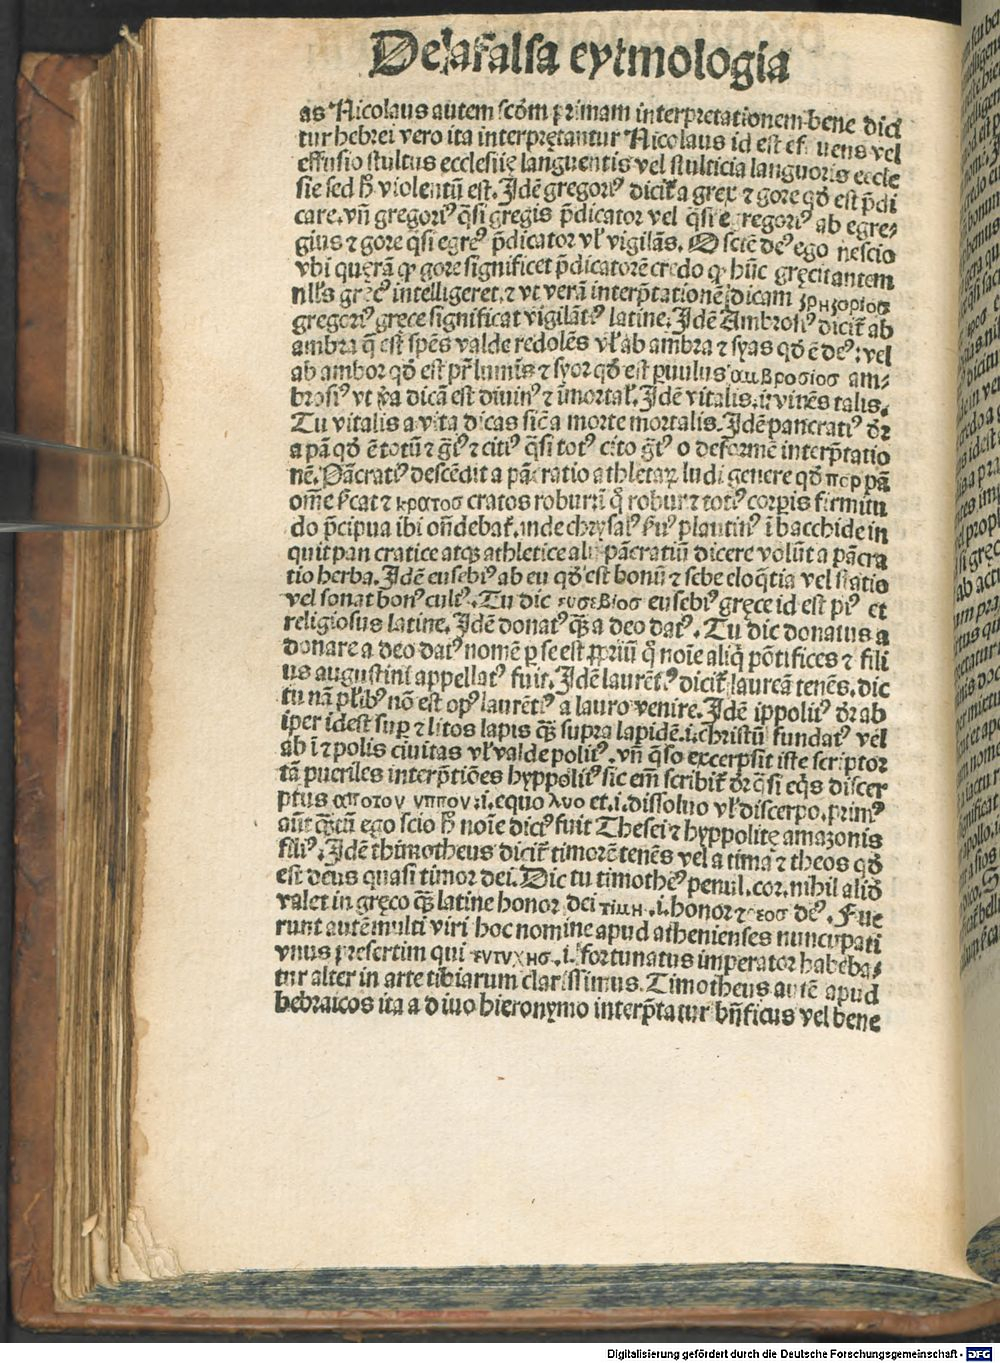 De falsa eytmologia
as Nicolaus autem scđm primam interpretationem bene dici
tur hebrei vero ita interpretantur Nicolaus id est ef uens vel
effusio stultus ecclesiię languentis vel stulticia languoris eccle
sie sed h̄ violentū est. Idē gregoriꝰ dicit̄ a grex ⁊ gore qđ est p̄di
care. vn̄ gregoriꝰ q̄si gregis p̄dicator vel q̄si egregoriꝰ ab egre⸗
gius ⁊ gore q̄si egreꝰ p̄dicator vl̓ vigilās. O sciē deꝰ ego nescio
vbi quęrā ꝙ gore significet p̄dicatorē credo ꝙ hūc gręcitantem
nll̓s gręcꝰ intelligeret. ⁊ vt verā interp̄tationē dicam γρηγοριος
gregoriꝰ grece significat vigilātꝰ latine. Idē Ambrosiꝰ dicit̄ ab
ambra q̄ est spēs valde redolēs vl̓ ab ambra ⁊ syas qđ ē deꝰ: vel
ab ambor qđ est pr̄ luminis ⁊ syor qđ est puulus αμβροσιος am⸗
brosiꝰ vt v̓a dicā est diuinꝰ ⁊ īmortal̓. Idē vitalis. i. viuēs talis.
Tu vitalis a vita dicas sic̄ a morte mortalis. Idē pancratiꝰ dr̄
a pā qđ ē totū ⁊ gr̄tꝰ ⁊ citiꝰ q̄si totꝰ cito gr̄tꝰ o deformē interp̄tatio
nē. Pācratiꝰ descēdit a pācratio athletaꝝ ludi genere qđ παρ pā
om̄e v̓cat ⁊ κρατος cratos roburū q̄ robur ⁊ totꝰ corpis firmitu
do p̄cipua ibi on̄debat̄. inde chrysalꝰ v̓uꝰ plautinꝰ ī bacchide in
quit pan cratice atqꝫ athletice ali pācratiū dicere volūt a pācra
tio herba. Idē eusebiꝰ ab eu qđ est bonū ⁊ sebe eloq̄tia vel statio
vel sonat bonꝰ culꝰ. Tu dic ευσεβιος eusebiꝰ gręce id est piꝰ et
religiosus latine. Idē donatꝰ qꝫ̄ a deo datꝰ. Tu dic donatus a
donare a deo datꝰ nomē p se est ꝓpriū q̄ noīe aliq̄ pōtifices ⁊ fili
us augustini appellatꝰ fuit. Idē laurētꝰ dicit̄ laureā tenēs. dic
tu nā pl̓ibꝰ nō est opꝰ laurētꝰ a lauro venire. Idē ippolitꝰ dr̄ ab
iper idest sup ⁊ litos lapis qꝫ̄ supra lapidē. i. christū fundatꝰ vel
ab ī ⁊ polis ciuitas vl̓ valde politꝰ. vn̄ q̄so excerpsit iste scriptor
tā pueriles interp̄tiōes hyppolitꝰ sic em̄ scribit̄ dr̄ q̄si eqꝰs discer
ptus αποτου υππου: i. equo λυο et. i. dissoluo vl̓ discerpo. primꝰ
aūt qꝫ̄tū ego scio h̄ noīe dictꝰ fuit Thesei ⁊ hyppolitę amazonis
filiꝰ. Idē thimotheus dicit̄ timorē tenēs vel a tima ⁊ theos qđ
est deus quasi timor dei. Dic tu timotheꝰ penul. cor. nihil aliđ
valet in gręco qꝫ̄ latine honor dei τιμη. i. honor ⁊ θεος deꝰ. Fue
runt autē multi viri hoc nomine apud athenienses nuncupati
vnus presertim qui ευτυχης. i. fortunatus imperator habeba⸗
tur alter in arte tibiarum clarissimus. Timotheus autē apud
hebraicos ita a diuo hieronymo interp̄tatur bn̄ficus vel bene
Digitalisierung gefördert durch die Deutsche Forschungsgemeinschaft - DFG